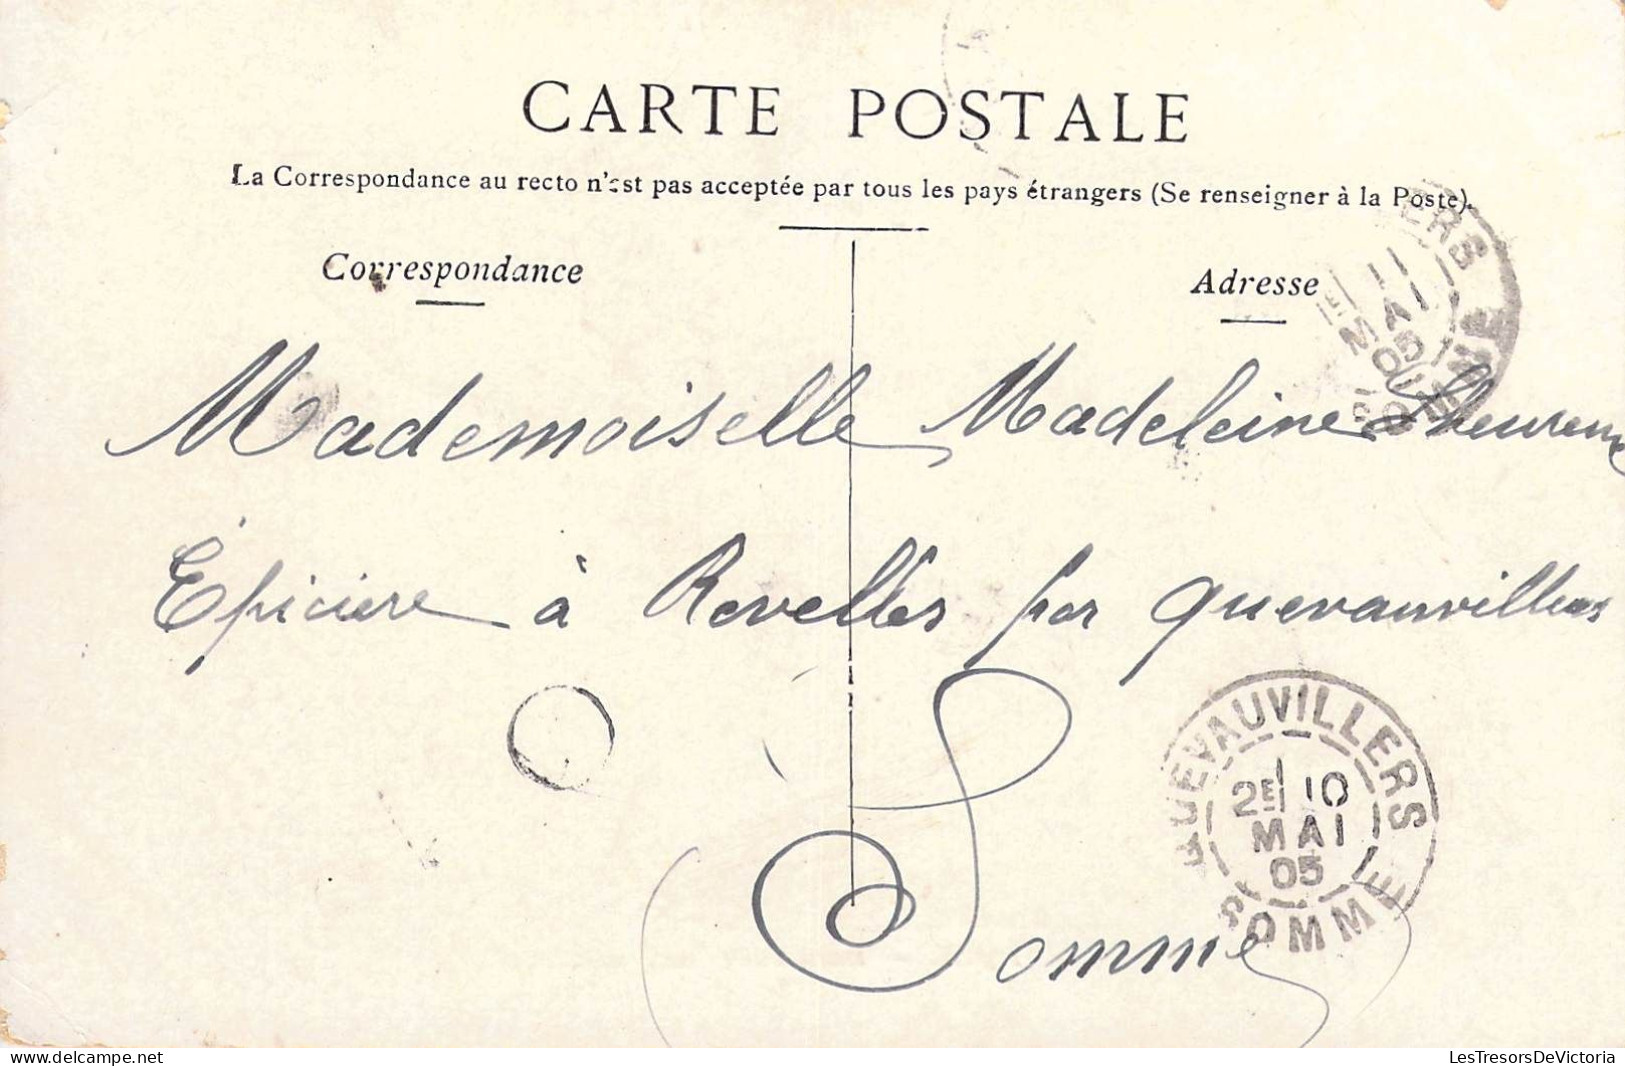 CARTE POSTALE
La Correspondance au recto n'est pas acceptée par tous les pays étrangers (Se renseigner à la Poste).
Correspondance
Adresse
Mademoiselle Madeleine
Épicière à Revelles par Quevauvillers
Somme
QUEVAUVILLERS
2E 10
MAI
05
SOMME
ERS
11
MAI
05
LesTresorsDeVictoria